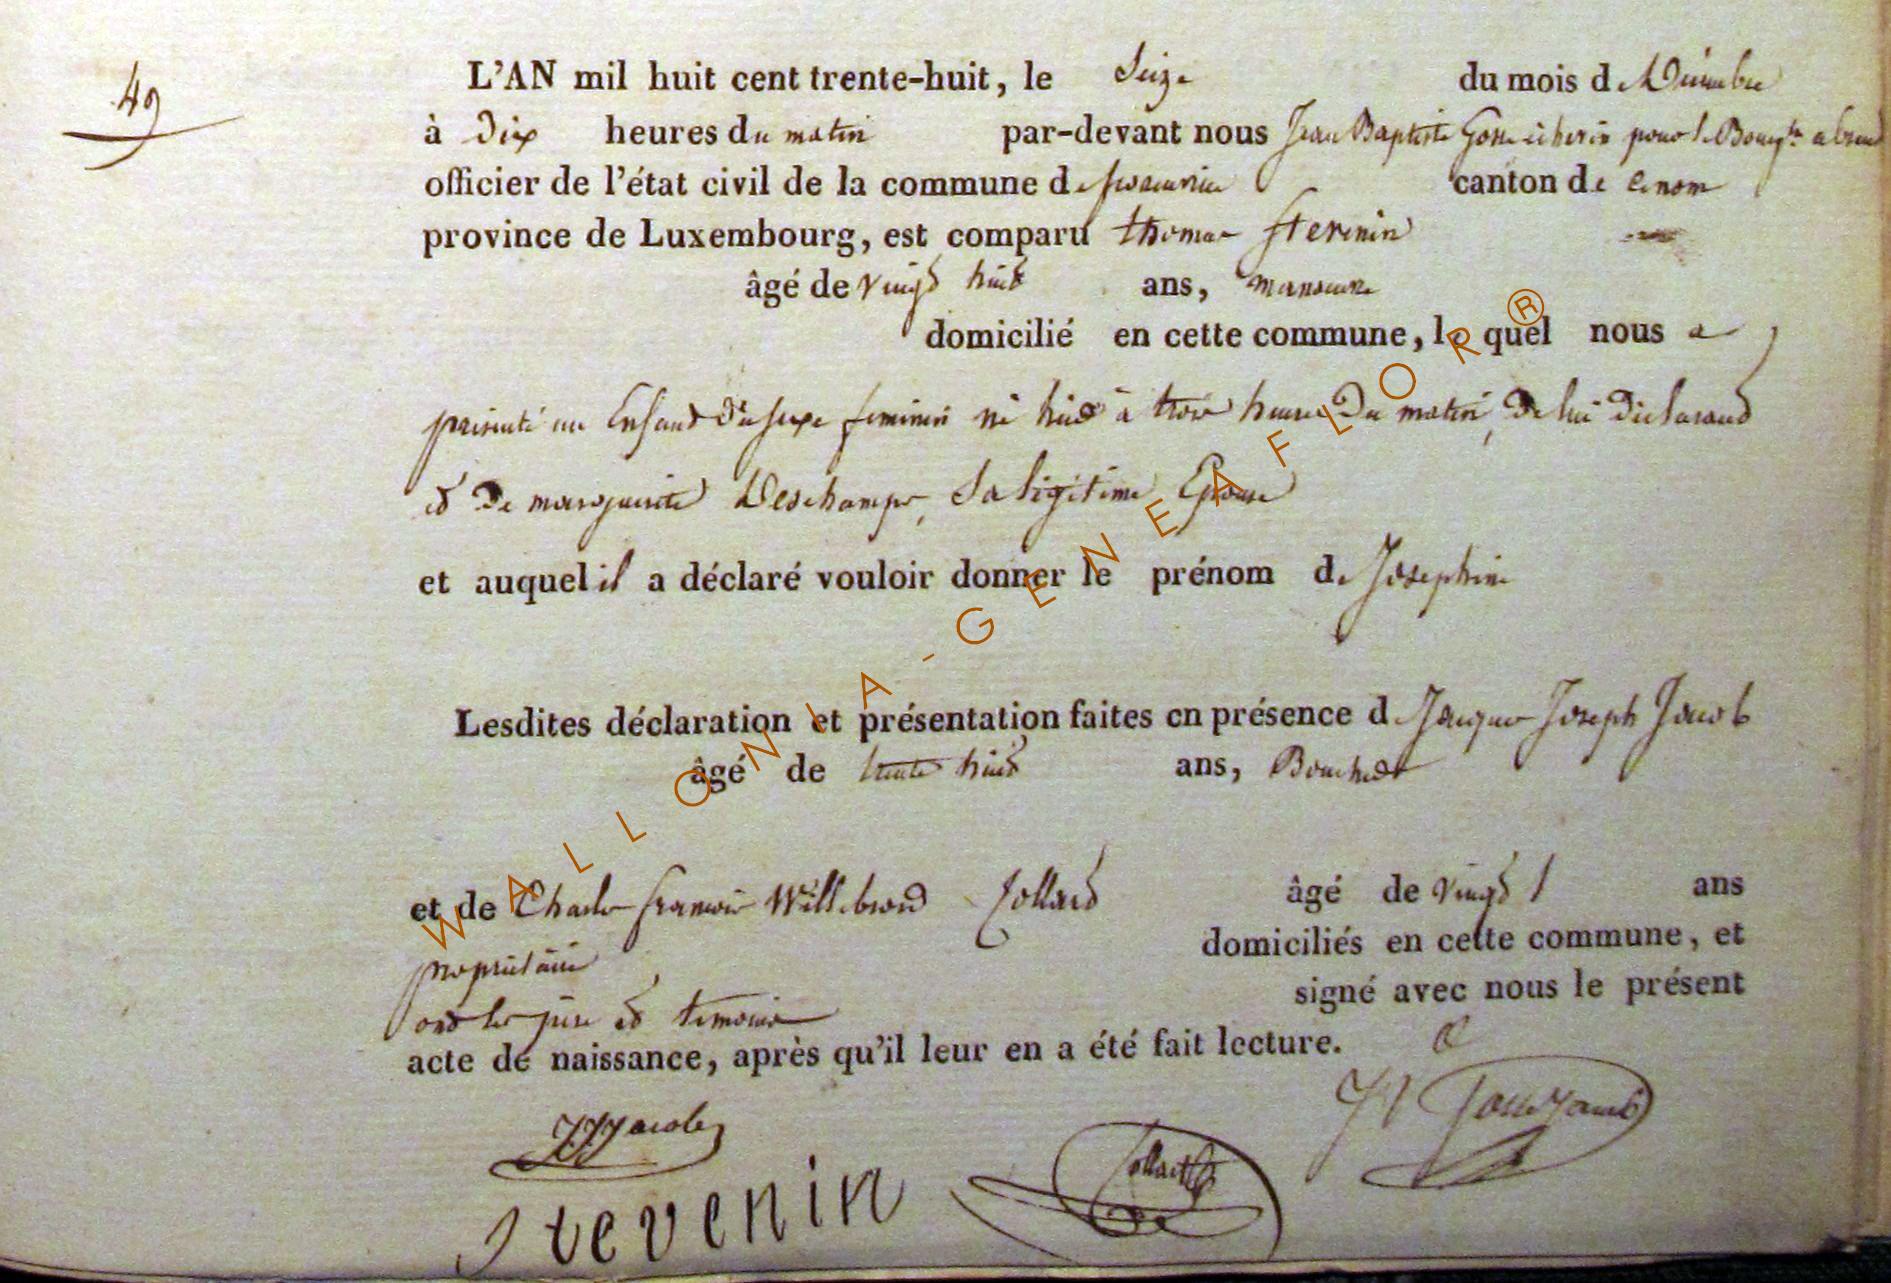 49
L'AN mil huit cent trente-huit, le Seize du mois de Décembre
à Dix heures du matin par-devant nous Jean Baptiste Gosse échevin pour le Bourgtre absent
officier de l'état civil de la commune de canton de
province de Luxembourg, est comparu thomas Stevenin
âgé de vingt huit ans, manoeuvre
domicilié en cette commune, le quel nous a
présenté un Enfant du sexe feminin né hier à trois heures Du matin, De lui Déclarant
et De marguerite Deschamps, Sa légitime Epouse
et auquel il a déclaré vouloir donner le prénom de Josephine
Lesdites déclaration et présentation faites en présence de Jacques Joseph Jacob
âgé de trente huit ans, Boucher
et de Charles françois Willebrord Collard âgé de vingt ans
domiciliés en cette commune, et
propriétaire
signé avec nous le présent
ont les père et témoins
acte de naissance, après qu'il leur en a été fait lecture.
JJ Jacob
Stevenin
Collard
WALLONIA-GENEAFLOR®